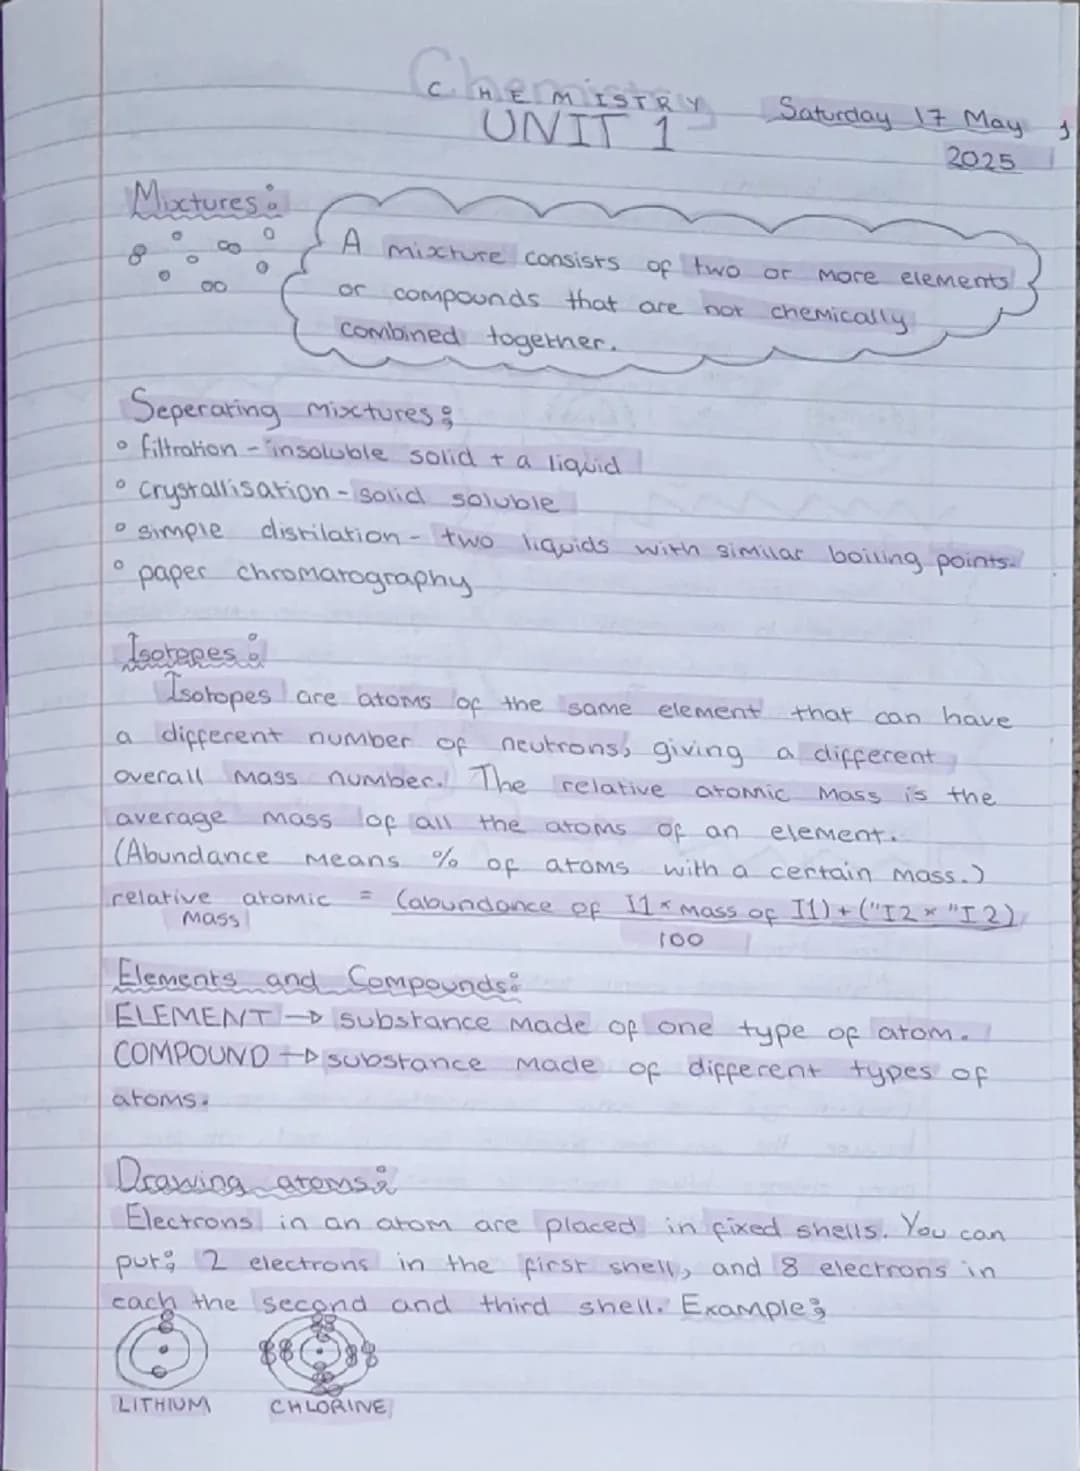 Chemistry
CHEMISTRY
UNIT 1
Saturday 17 May
2025
Mixtures:
A mixture consists of two or more elements
or compounds that are not chemically
combined together.
Seperating mixtures:
filtration - insoluble solid + a liquid
crystallisation - solid soluble
simple distilation - two liquids with similar boiling points.
paper chromatography
Isotopes:
Isotopes are atoms of the same element that can have
a different number of neutrons, giving a different
overall mass number. The relative atomic mass is the
average mass of all the atoms of an element.
(Abundance means % of atoms with a certain mass.)
relative atomic = (abundance of I1 × mass of I1) + ("I2 × "I2)
mass 100
Elements and Compounds:
ELEMENT → substance made of one type of atom.
COMPOUND → substance made of different types of
atoms.
Drawing atoms:
Electrons in an atom are placed in fixed shells. You can
put: 2 electrons in the first shell, and 8 electrons in
each the second and third shell. Example:
LITHIUM CHLORINE